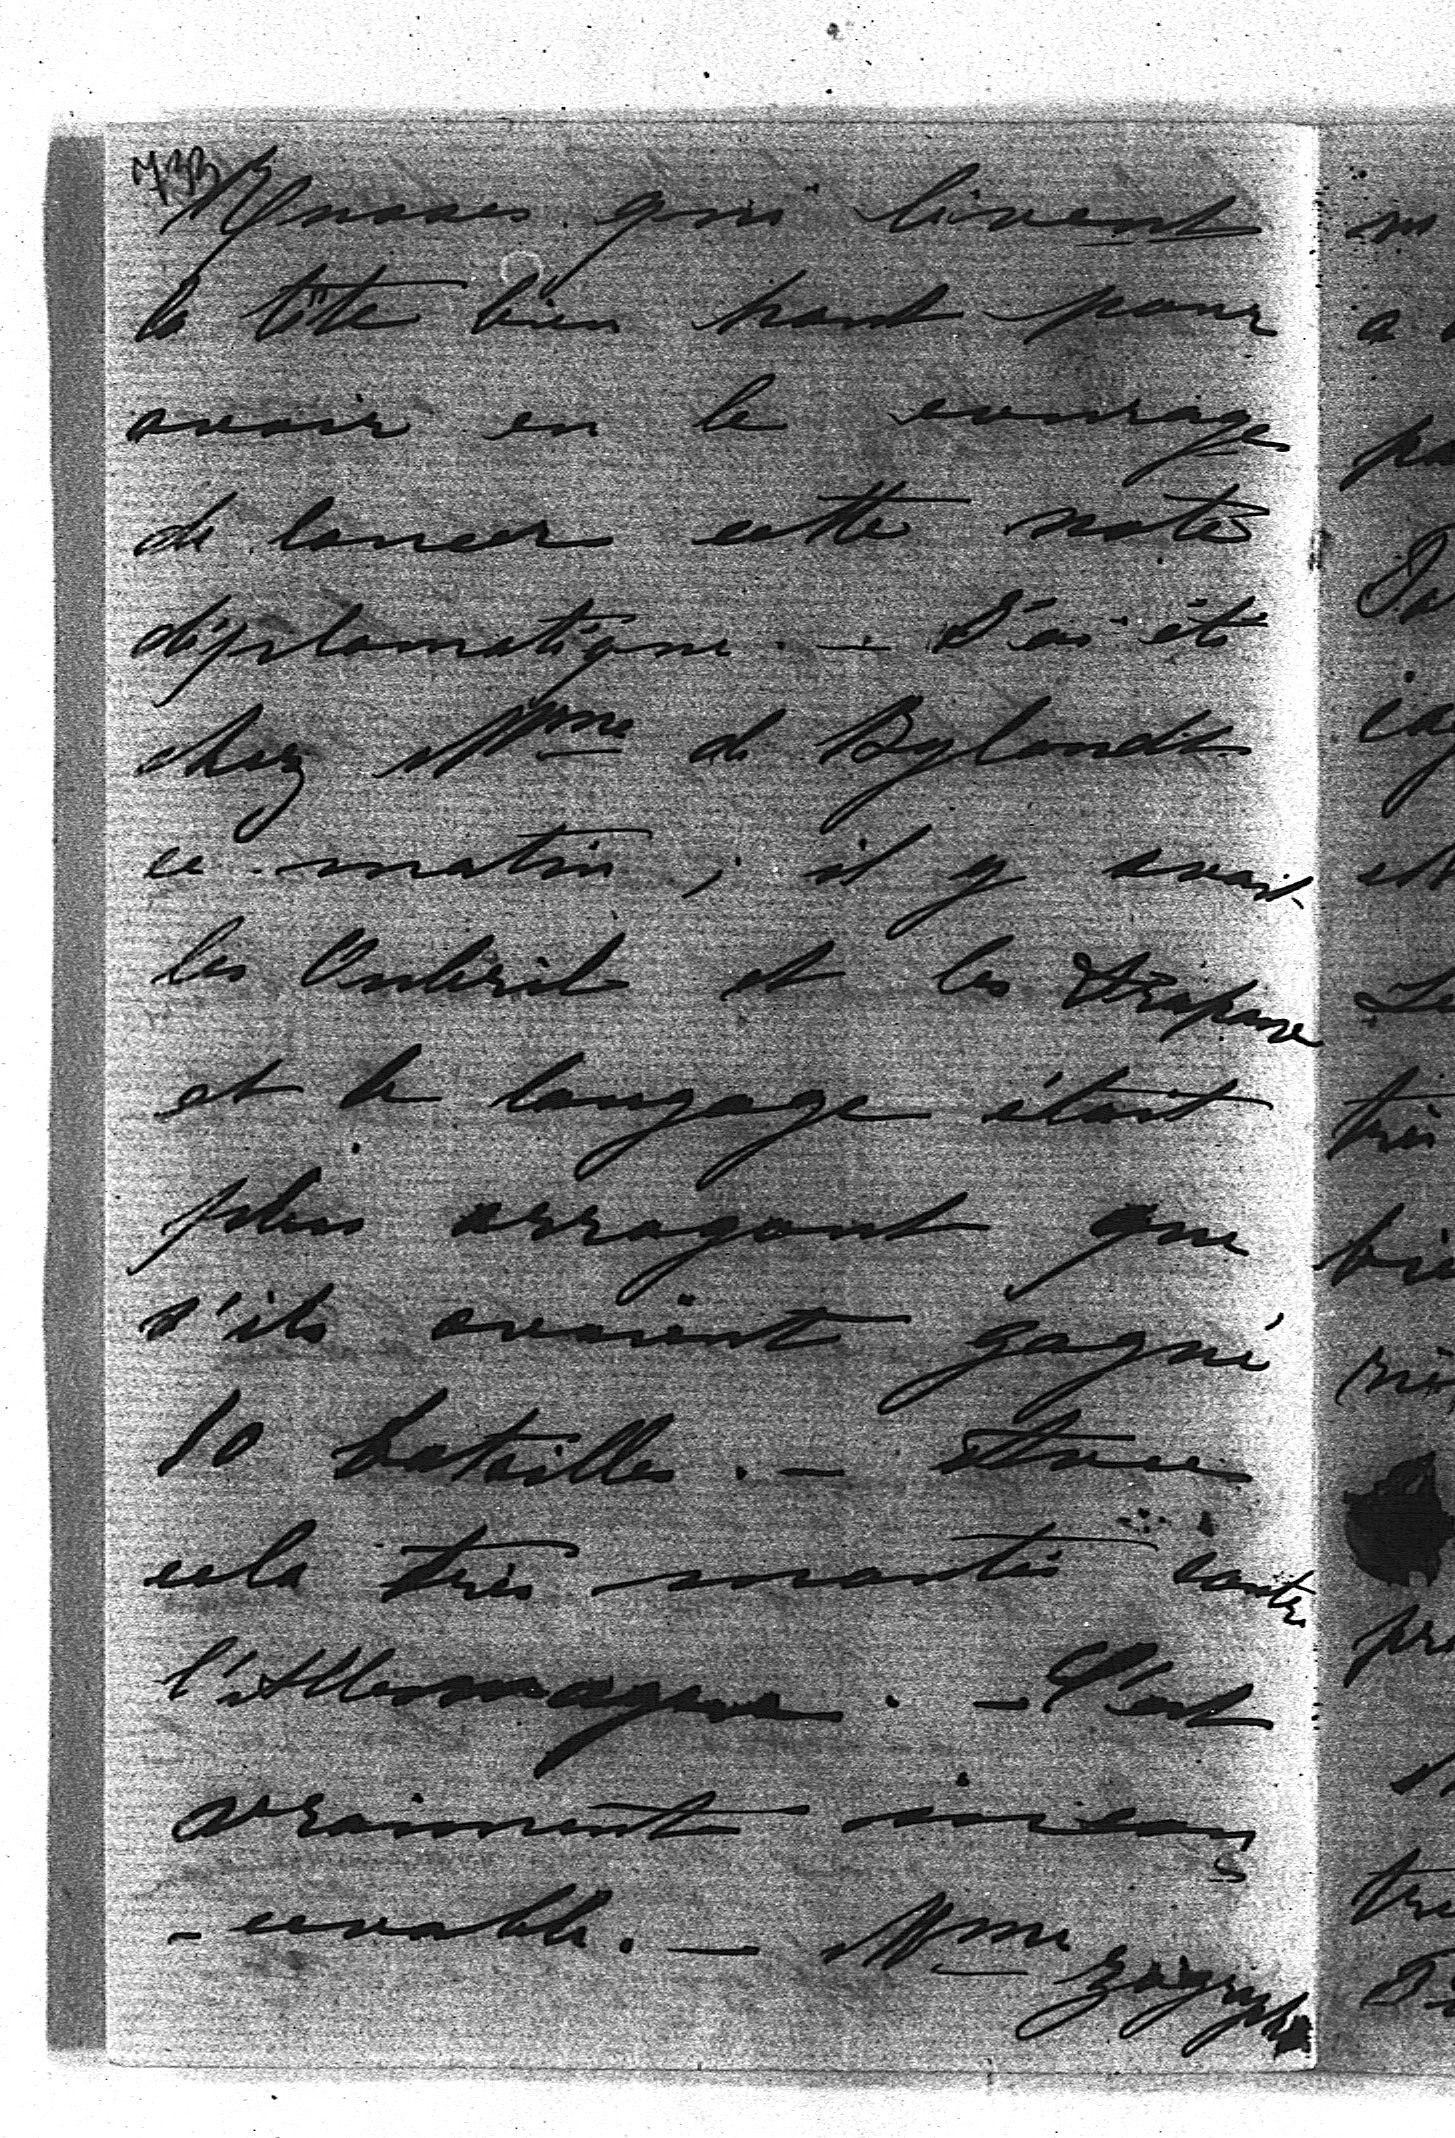 733
Russes qui lèvent
la tête bien haut pour
avoir eu le courage
de lancer cette note
diplomatique. — J'ai été
chez Mme de Bylandt
ce matin ; il y avait
les et les
et le langage était
plus arrogant que
s'ils avaient gagné
10 batailles. — Avec
cela très montés contre
l'Allemagne. — C'est
vraiment incon
-cevable. — Mme Zographo